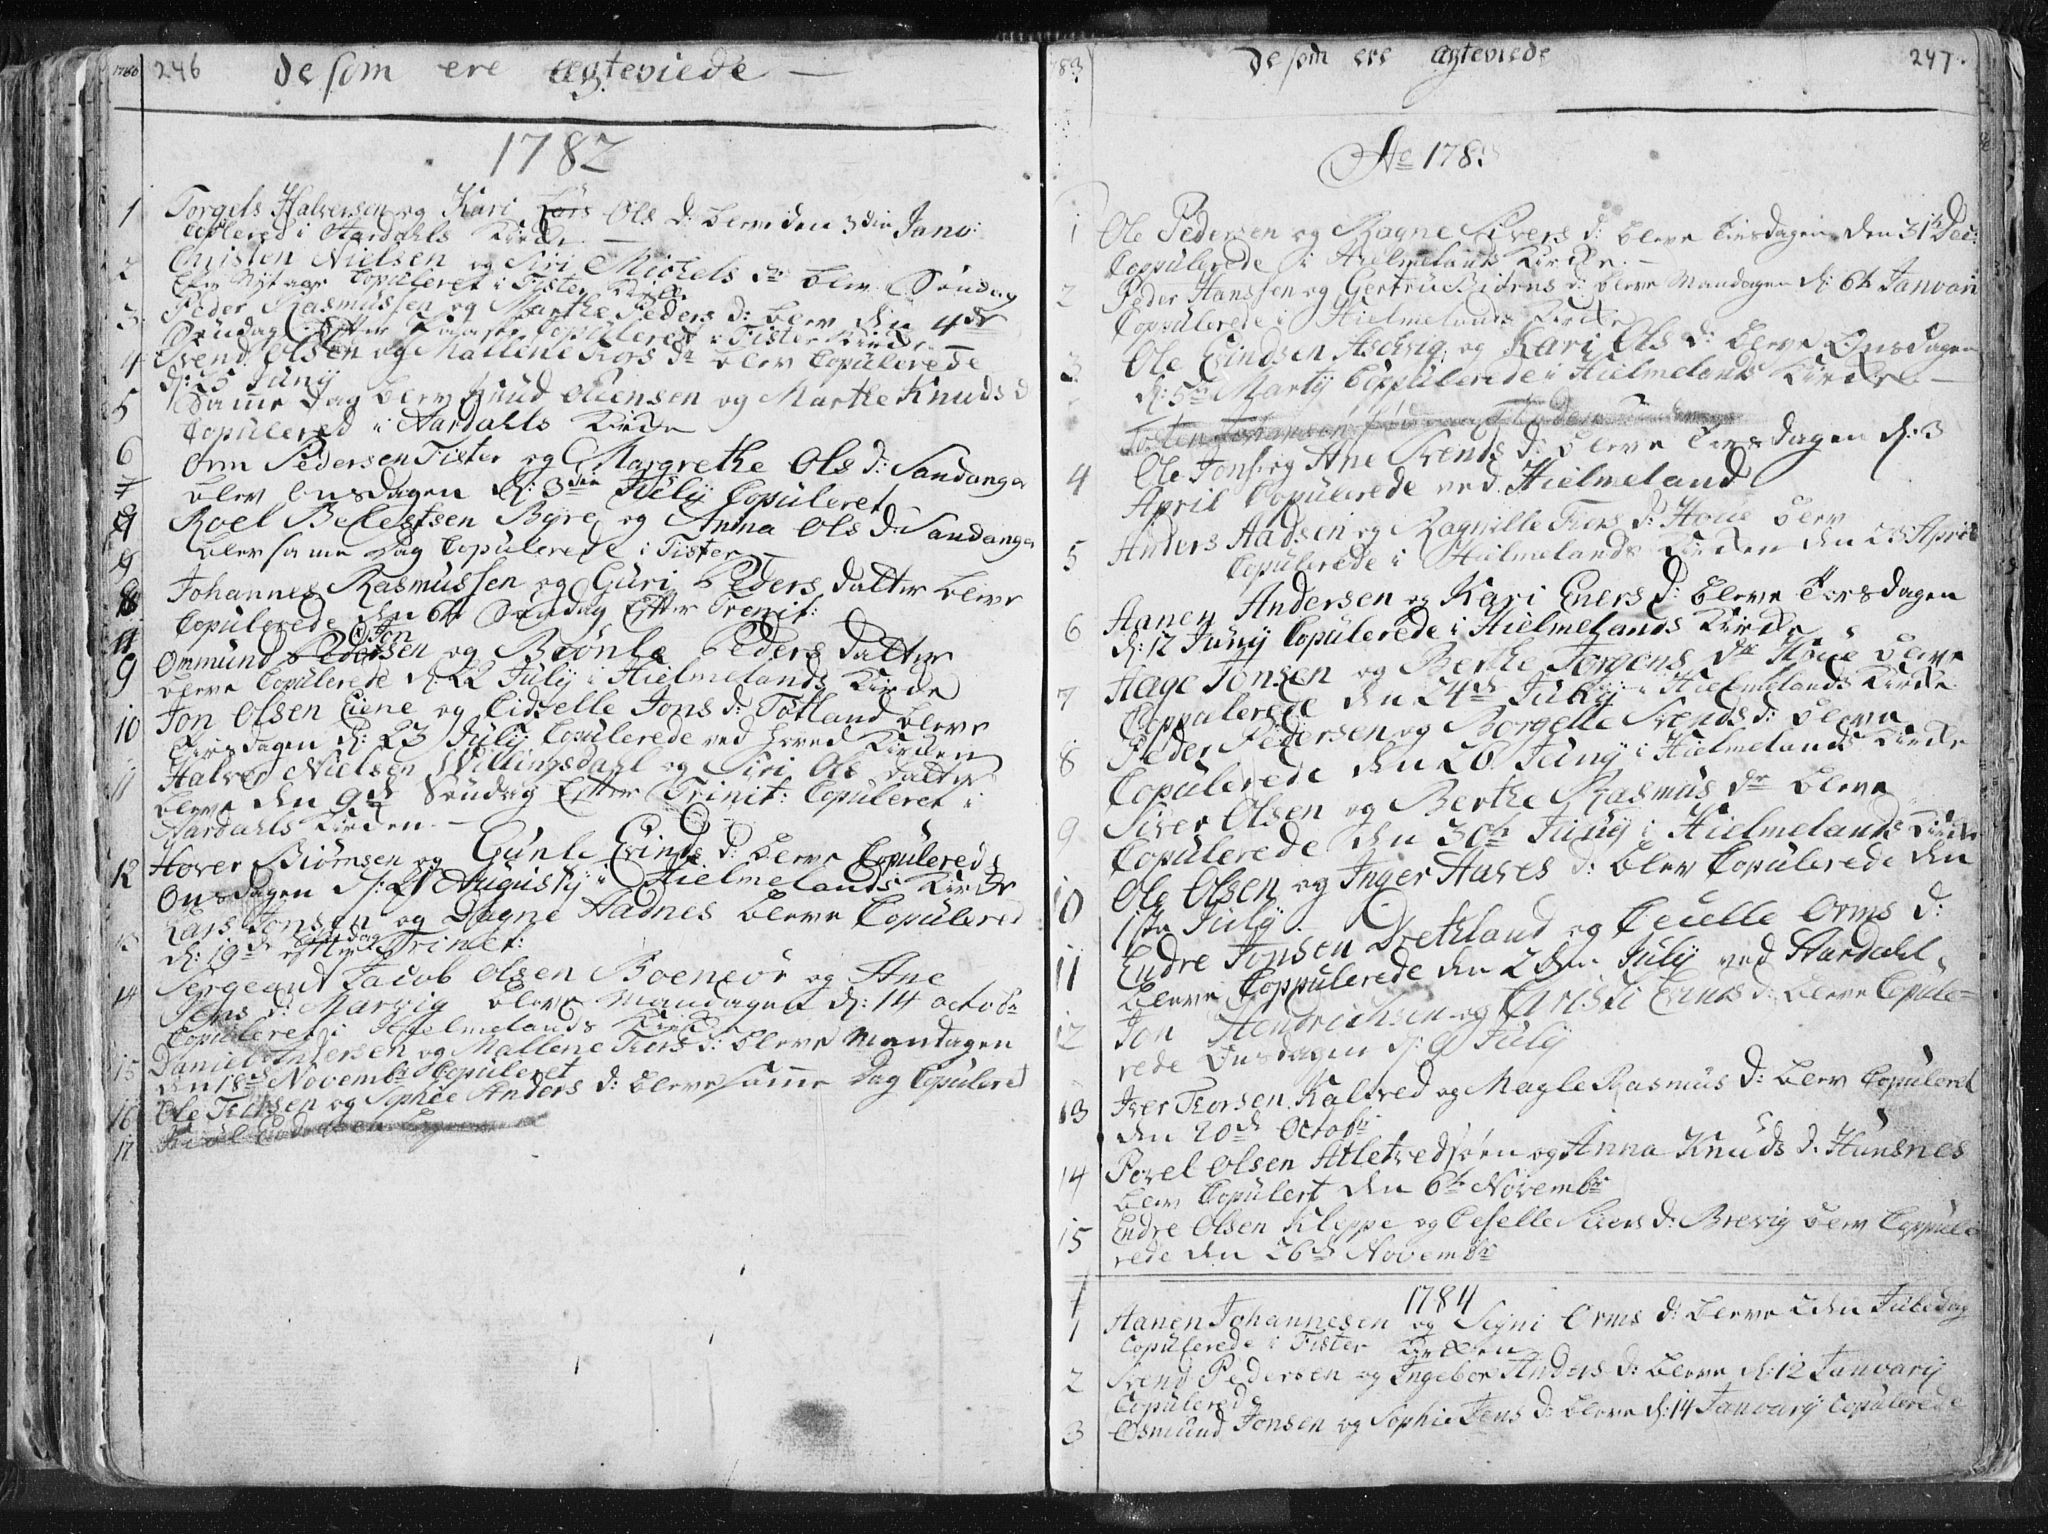 246 de som ere egteviede
1782
1 Torgels Halversen og Kari Ols d: bleve den 3die Janv:
Copulered i Aardahls Kirke
2 Christen Nielsen og Siri Michels dr blev Søndag
Efter Nytaar Copuleret i Fister Kirke
3 Peder Rasmussen og Marthe Peders d: blev den 4de
Søndag Efter Paaske Copulered i Fister Kirke
4 Svend Olsen og Mallene Tors dr blev Copulerede
d: 25 Juny
5 Samme Dag blev Knud og Marthe Knuds d
Copulered i Aardahls Kirke
6 Orm Pedersen Fister og Margrethe Ols d: Sandanger
blev Onsdagen d: 3die July Copuleret
7 Roel Byre og Anna Ols d: Sandanger
blev samme Dag Copulerede i Fister
8 Johannes Rasmussen og Guri Peders datter bleve
Copulerede den 6te Søndag Efter Trenit:
9 Ommund Jonsen og Brønle Peders datter
bleve Copulerede d: 22 July i Hielmelands Kirke
10 Jon Olsen Eiene og Cidzelle Jons d: Tøtland bleve
Tirsdagen d: 23 July Copulerede ved hoved Kirken
11 Halver Nielsen Willingsdahl og Siri Ols datter
bleve den 9de Søndag Efter Trinit: Copuleret i
Aardahls Kirken
12 Hover Biørnsen og Gunle Evinds d: bleve Copulerede
Onsdagen d: 21 Augusty i Hielmelands Kirke
13 Lars Jonsen og Dagne Aadnes bleve Copulered
d: 19de Søndag efter Trinit:
14 Sergeant Jacob Olsen Boenøe og Ane
Jens d: Marvig bleve Mandagen d: 14 octobr
Copuleret i Hielmelands Kirke
15 Daniel Iversen og Mallene Tors d: bleve Mandagen
den 18de Novembr Copuleret
16 Ole Torsen og Sophie Anders d: bleve samme Dag Copuleret
17
de som ere egteviede 247
Ao 1783
1 Ole Pedersen og Ragne Sivers d: bleve Tirsdagen den 31te Dec:
Coppulerede i Hielmelands Kirke
2 Peder Hanssen og d: bleve Mandagen d: 6te Januari
Coppulerede i Hielmelands Kirke
3 Ole Evindsen Aschvig og Kari Ols d: bleve Onsdagen
d: 5te Marty Coppulerede i Hielmelands Kirke
4 Ole Jons: og Ane Svends d: bleve Tirsdagen d: 3
April Copulerede ved Hielmeland
5 Anders Aadsen og Ragnille Tors d: Houe blev
Copulerede i Hielmelands Kirken den 23 April
6 Aanen Andersen og Kari Eners d: bleve Torsdagen
d: 12 Juny Copulerede i Hielmelands Kirke
7 Hage Jonsen og Berthe Jorgens dr Houe bleve
Coppulerede den 24de July i Hielmelands Kirke
8 Peder Pedersen og Borgelle Svends d: bleve
Copulerede den 26 Juny i Hielmelands Kirke
9 Siver Olsen og Berthe Rasmus dr bleve
Copulerede den 30th Juny i Hielmelands Kirke
10 Ole Olsen og Inger Aaves d: blev Copulerede den
1ste July
11 Endre Jonsen Dretland og Cecelle Orms d:
bleve Coppulerede den 2den July ved Aardahl
12 Jon Hendrichsen og Christi Evinds d: bleve Copule-
rede Onsdagen d: 9 July
13 Iver Torsen Kalved og Magle Rasmus d: blev Copuleret
den 20de Octobr
14 Povel Olsen Atletvedsøen og Anna Knuds d: Hunsnes
blev Copulert den 6te Novembr
15 Endre Olsen Kleppe og Ceselle Siers d: Brevig blev Coppule-
rede den 26de Novembr
1784
1 Hanen Johannesen og Signi Orms d: bleve 2den Juledag
Copulerede i Fister Kirken
2 Svend Pedersen og Ingebor Anders d: bleve d: 12 Januarij
Copulered
3 Osmund Jonsen og Sophie Jens d: bleve d: 14 Januarij Copulerede